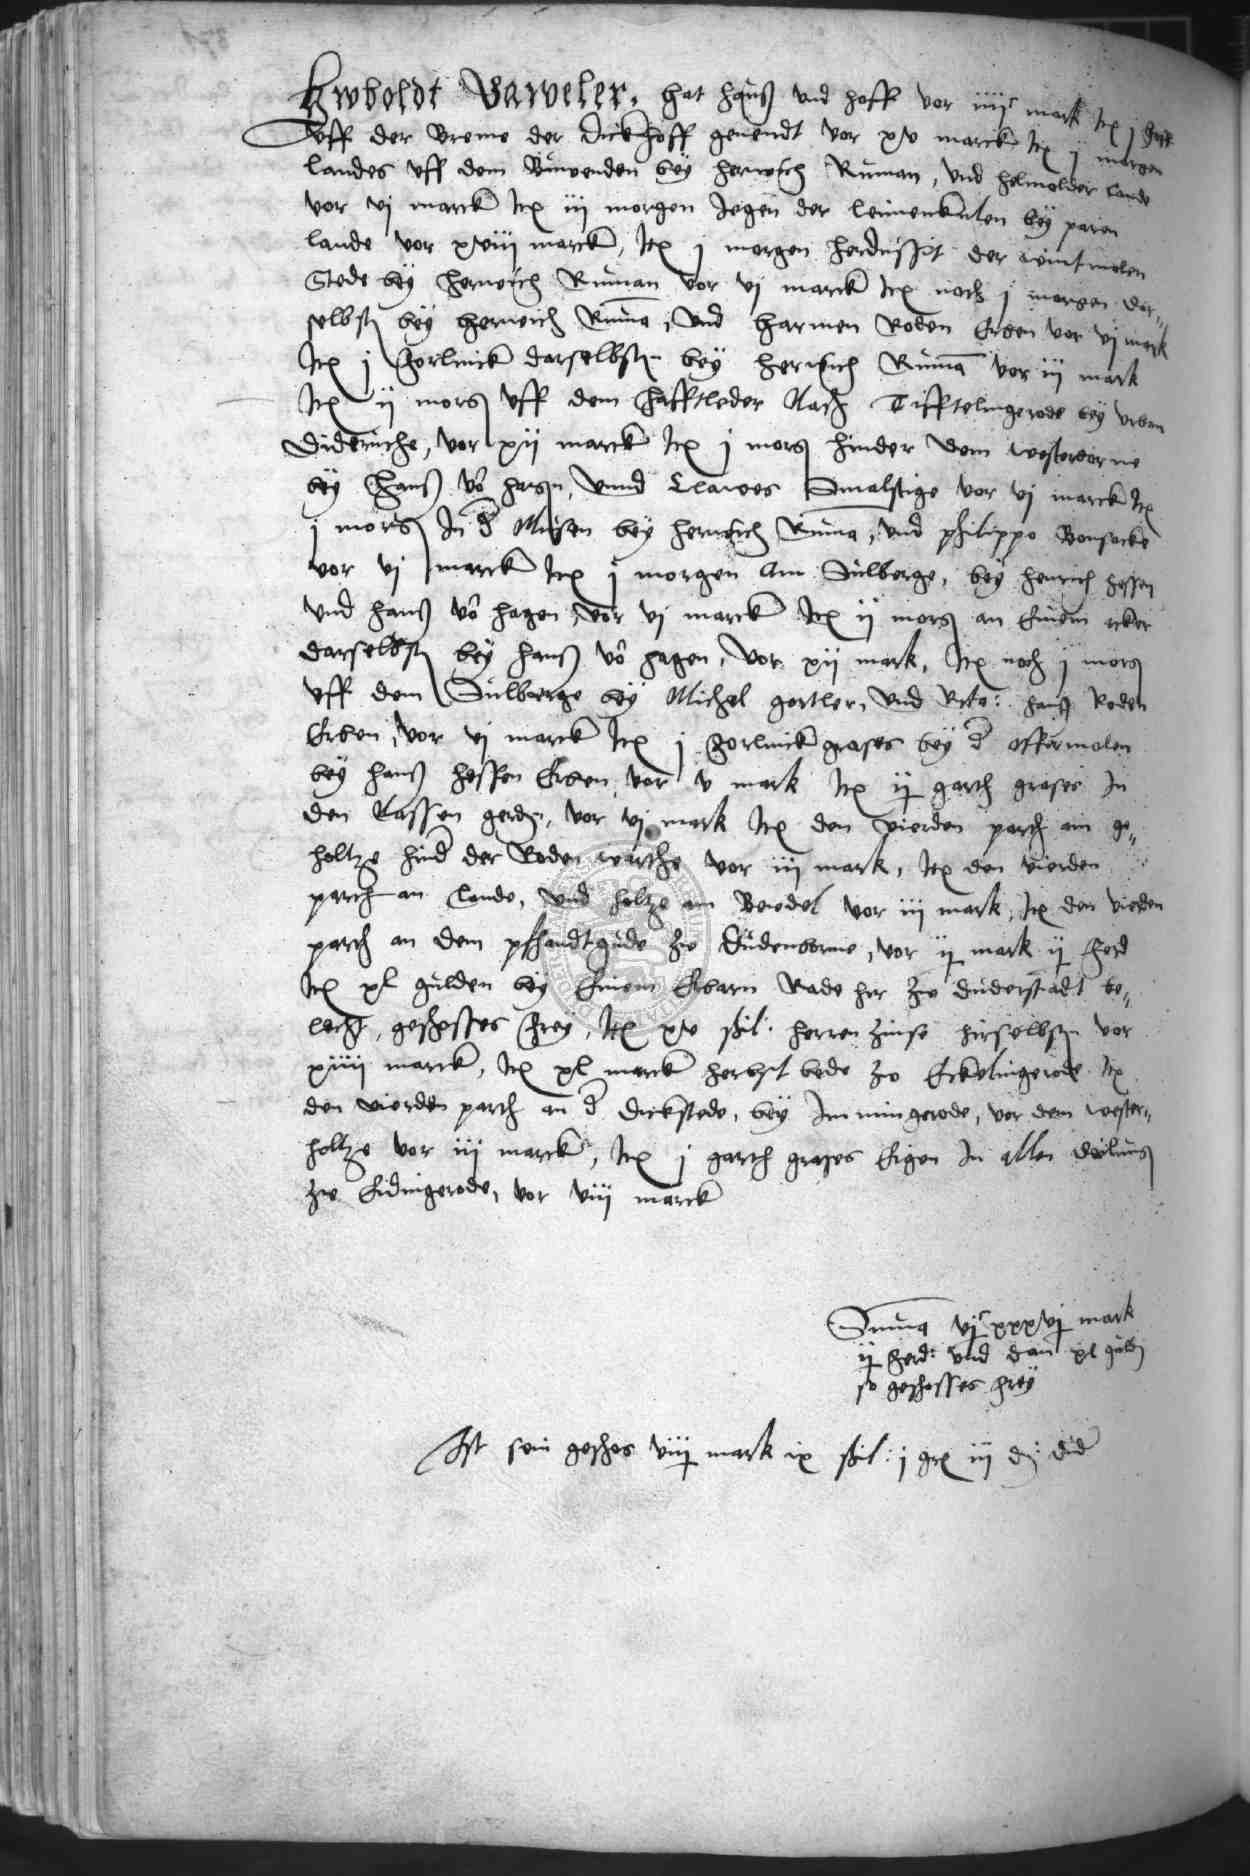 Hwboldt Varweler, hat hauß vnd hoff vor iiijc mark Itē j hoff
Vff der Breme der Dickhoff genendt vor xv marck Itē j morgen
landes vff dem Buwenden bey Henrich Ruman, vnd Helmolder lande
vor vj marck Itē iij morgen Jegen der leimenkulen bey
lande vor xviij marck, Itē j morgen der wintmolen
Stede bey Henrich Ruman vor vj marck Itē noch j morgen dar„
selbst bey Henrich Ruma, vnd Harmen Roden Erben vor vj mark
Itē j Vorlinck darselbst bey Henrich Ruma vor iij mark
Itē ij morg vff dem nach Tifftelingerode bey vrban
Diderriche, vor xij marck Itē j morg hinder dem westerborne
bey Hans vō hagen, vnnd Clawes Smalstige vor vj marck Itē
j morg In d bey Henrich Ruma, vnd philippo Bonsacke
vor vj marck Itē j morgen Am Sulberge, bey Henrich Hessen
vnd Hans vō Hagen, vor vj marck Itē ij morg an Einem acker
darselbst bey Hans vō Hagen, vor xij mark, Itē noch j morg
vff dem Sulberge bey Michel gortler, vnd Hans Roden
Erben, vor vj marck Itē j Vorlinck grases bey d offermolen
bey Hans Hessen Erben, vor v mark Itē ij garth grases In
den Cassen gerdn, vor vj mark Itē den vierden parth am ge„
holtze hind der Roden warthe vor iij mark, Itē den vierden
parth an lande, vnd holtze am vor iij mark, Itē den vierden
parth an dem pfhandtgude zw Dudenborne, vor ij mark ij ferd
Itē xl gulden bey Einem Erbarn Rade hir zw duderstadt be„
lecht, geschosses frey, Itē xv schil: herren zinse hirselbst vor
xiiij marck, Itē xl marck herbst bede zw Eckelingerode Itē
den vierden parth an d Dickstede, bey Immingerode, vor dem wester„
holtze vor iij marck, Itē j garth grases Eigen In allen deilung
zw Eidingerode, vor viij marck
Summa vjc xxxvj mark
ij ferd: vnd dan xl guld
so geschosses frey
Ist sein geschos viij mark ix schil: j gr iij d: did